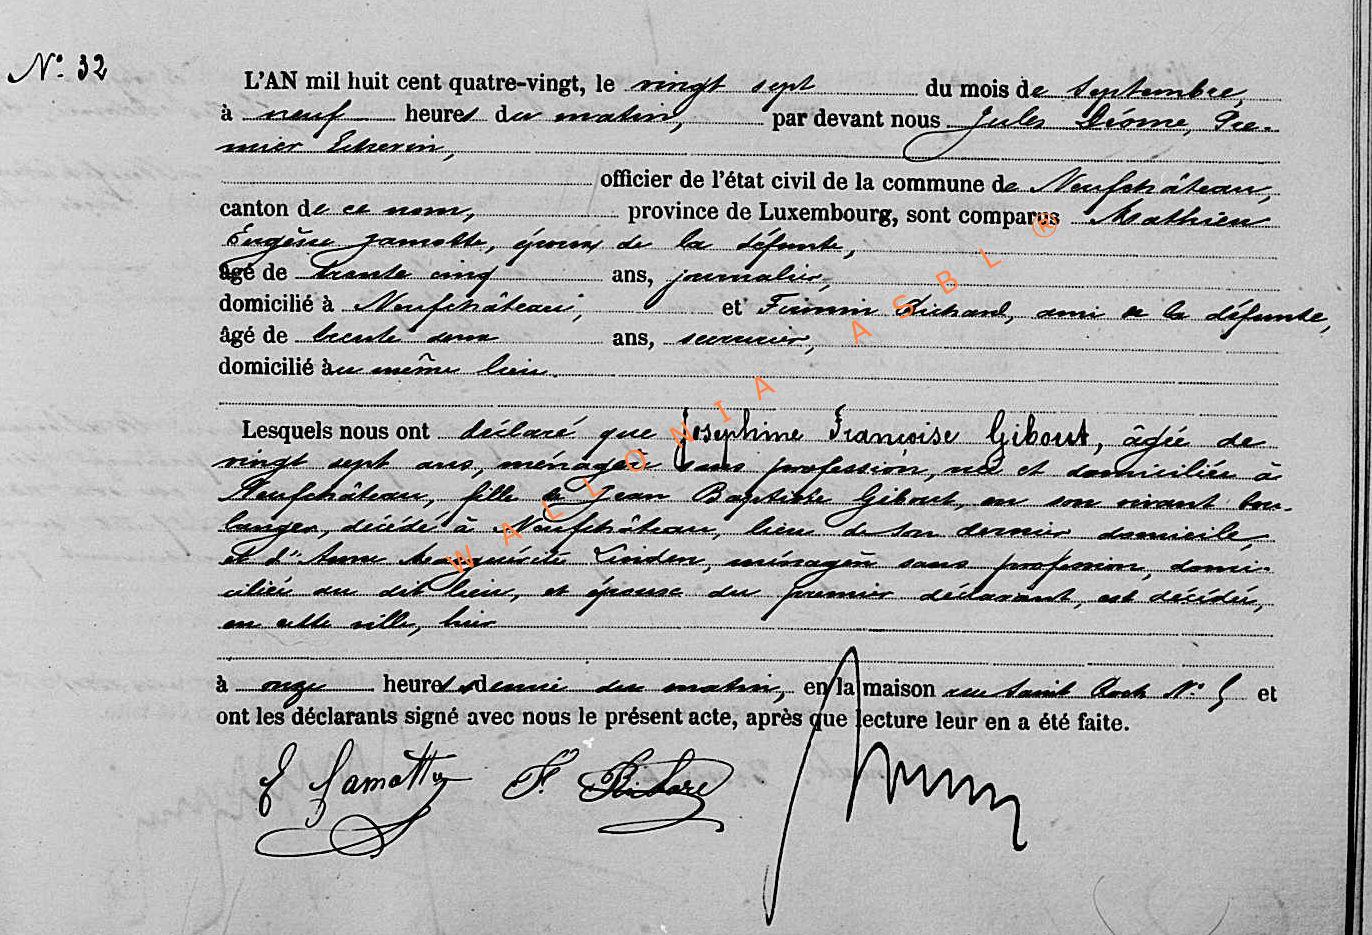 N° 32
L'AN mil huit cent quatre-vingt, le vingt sept du mois de Septembre,
à neuf heures du matin, par devant nous Jules Diome, Pre-
mier Echevin,
officier de l'état civil de la commune de Neufchâteau,
canton de ce nom, province de Luxembourg, sont comparus Mathieu
Eugène Jamotte, époux de la défunte,
âgé de trente cinq ans, journalier,
domicilié à Neufchâteau, et Firmin Richard, ami de la défunte,
âgé de trente deux ans, serrurier,
domicilié au même lieu.
Lesquels nous ont déclaré que Josephine Françoise Gibout, âgée de
vingt sept ans, ménagère sans profession, née et domiciliée à
Neufchâteau, fille de Jean Baptiste Gibout, en son vivant bou-
langer, décédé à Neufchâteau, lieu de son dernier domicile,
et d'Anne Marguérite Linden, ménagère sans profession, domi-
ciliée au dit lieu, et épouse du premier déclarant, est décédée,
en cette ville, hier
à onze heures demie du matin, en la maison rue Saint Roch N° 5 et
ont les déclarants signé avec nous le présent acte, après que lecture leur en a été faite.
E Jamotte F. Richard
WALLONIA ASBL ®